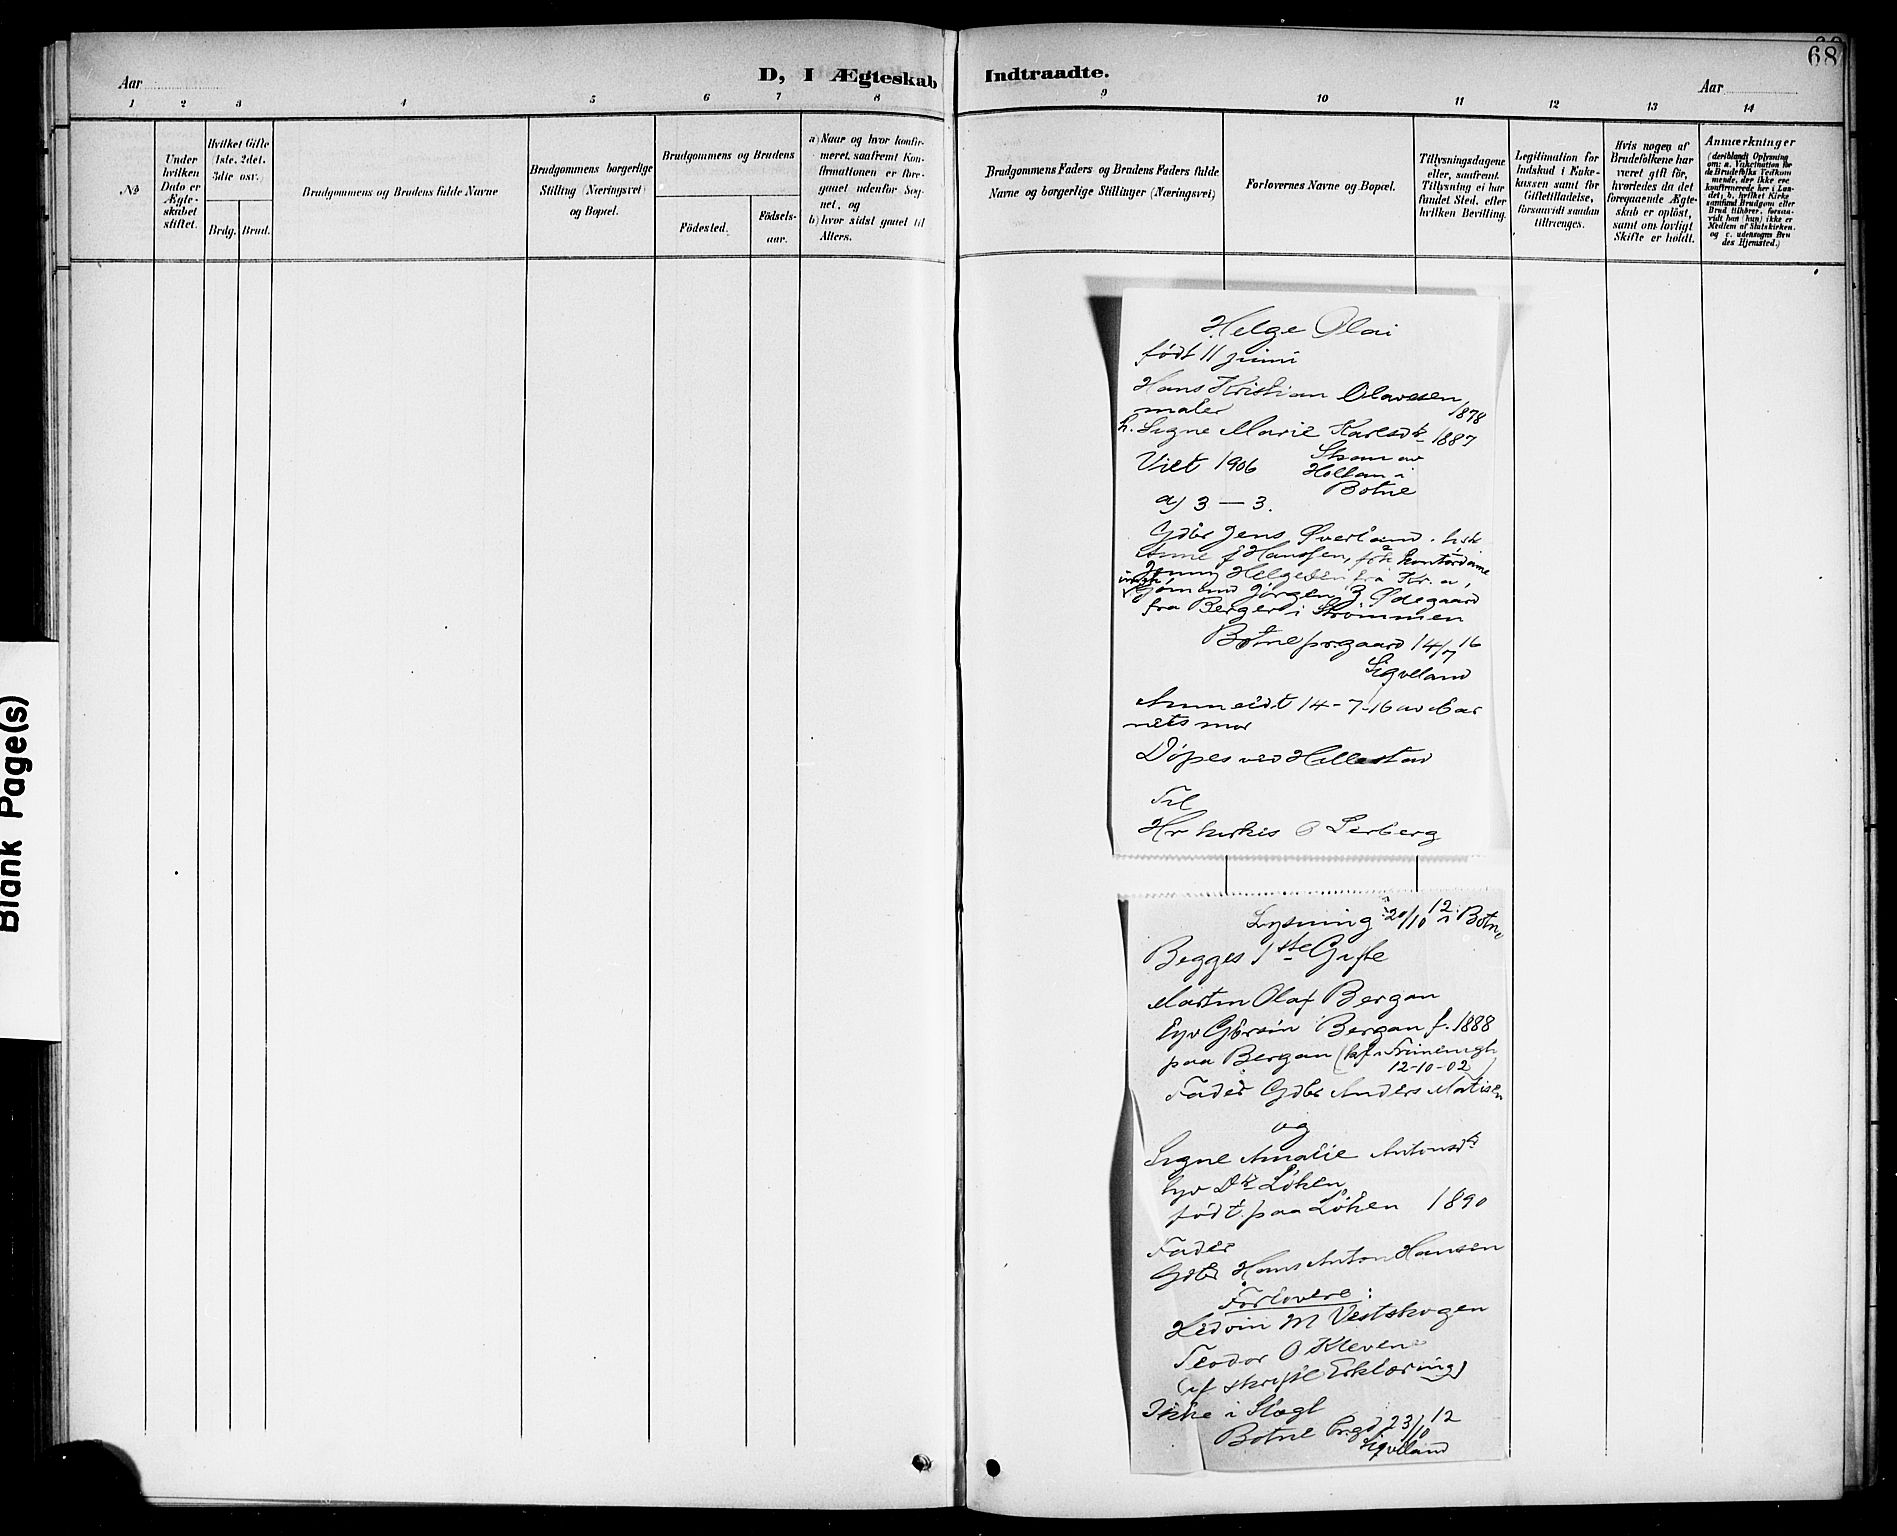 68
D, I Ægteskab Indtraadte.
Aar
Aar
1 2 3 4 5 6 7 8 9 10 11 12 13 14
No
Under
hvilken
Dato er
Ægte-
skabet
stiftet.
Hvilket Gifte
(1ste. 2det.
3die osv.)
Brdg. Brud.
Brudgommens og Brudens fulde Navne
Brudgommens borgerlige
Stilling (Næringsvei)
og Bopæl.
Brudgommens og Brudens
Fødested.
Fødsels-
aar.
a) Naar og hvor konfir-
meret, saafremt Kon-
firmationen er fore-
gaaet udenfor Sog-
net, og
b) hvor sidst gaaet til
Alters.
Brudgommens Faders og Brudens Faders fulde
Navne og borgerlige Stillinger (Næringsvei)
Forlovernes Navne og Bopæl.
Tillysningsdagene
eller, saafremt
Tillysning ei har
fundet Sted, efter
hvilken Bevilling.
Legitimation for
Indskud i Enke-
kassen samt for
Giftetilladelse,
forsaavidt saadan
tiltrænges.
Hvis nogen af
Brudefolkene har
været gift før,
hvorledes da det
foregaaende Ægte-
skab er opløst,
samt om lovligt
Skifte er holdt.
Anmærkninger
(deriblandt Oplysning
om: a. Vakcination for
de Brudefolks Vedkom
mende, der ikke ere
konfirmerede her i Lan-
det; b. hvilket Kirke
samfund Brudgom eller
Brud tilhører, forsaa-
vidt han (hun) ikke er
Medlem af Statskirken.
og c. udensogns Bru
des Hjemsted.)
Helge Olai
født 11 juni
Hans Kristian Olavesen
maler 1878
h. Signe Marie Karlsdtr 1887
Viet 1906 Skauav
Holtan i
Botne
a) 3 — 3.
Gdbr Jens Øverland. hstr
Anne J Hansen, frk kontordame
Jenny Helgesen fra Kr. a,
Jørgen Ødegaard
fra Berger i Strømmen
Botne prgaard 14/7 16
Sigveland
Anmeldt 14-7-16 av bar
nets mor
Døpes ved Hillestad
Til
Hr kirkes O Lerberg
Lysning 20/10 12 i Botne
Begges 1ste Gifte
Martin Olaf Bergan
Bergan f. 1888
paa Bergan (kf i
12-10-02)
Fader Gdbr Anders Matisen
og
Signe Amalie Antonsdtr
Løken
født paa Løken 1890
Fader
Gdbr Hans Anton Hansen
Forlovere:
Ledvin M Vestskogen
Teodor O Kleven
(af skriftl Erklæring)
Ikke i Slægt
Botne Prgd 23/10 12
Sigveland
Blank Page(s)